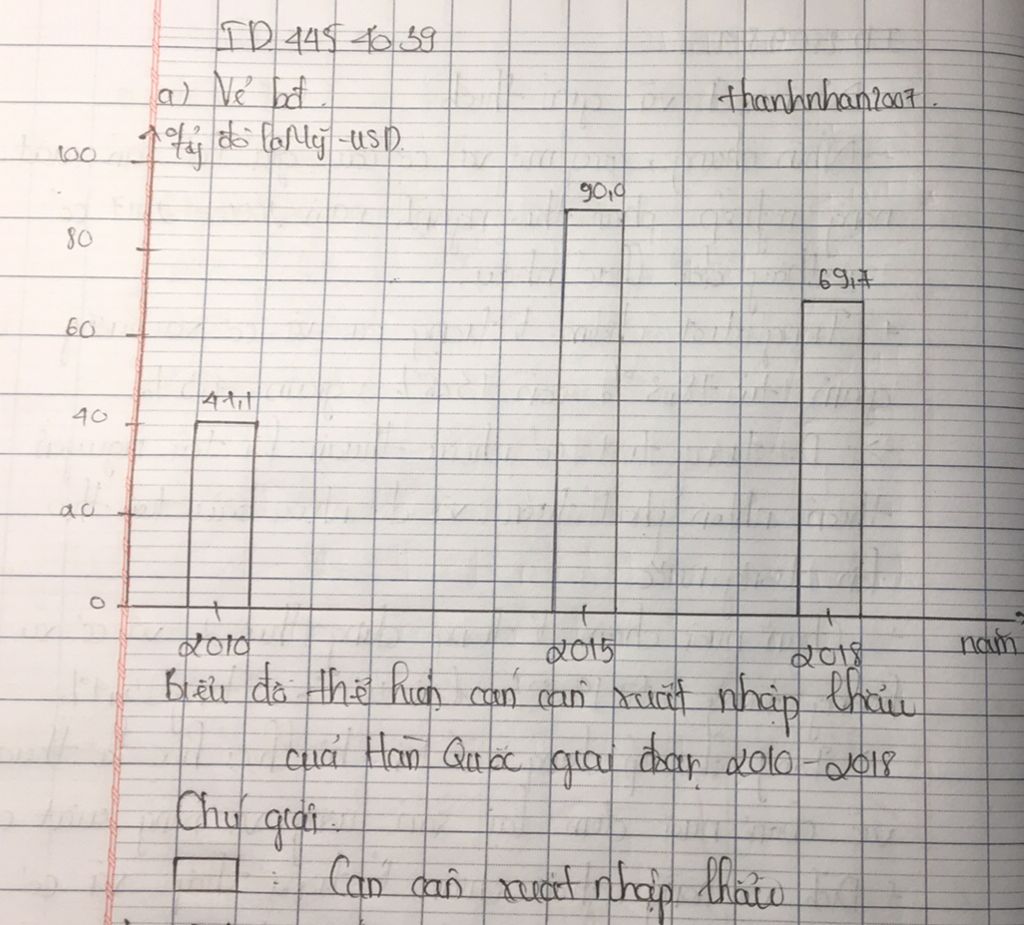 ID 445 40 39
a) Vẽ bđ.
thanhnhan2007.
tỷ đô la Mỹ - USD.
100
90,0
80
69,7
60
41,1
40
20
0
2010 2015 2018 năm
Biểu đồ thể hiện cán cân xuất nhập khẩu
của Hàn Quốc giai đoạn 2010 - 2018
Chú giải:
: Cán cân xuất nhập khẩu